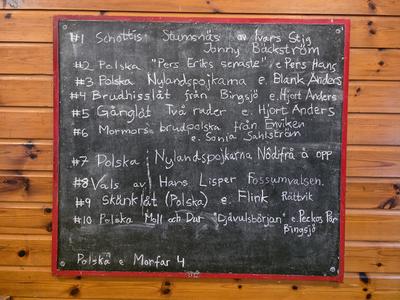 #1 Schottis Stumsnäs av Ivars Stig
Jonny Bäckström
#2 Polska "Pers Eriks senaste", e Pers Hans
#3 Polska Nylandspojkarna e Blank Anders
#4 Brudhisslåt från Bingsjö e. Hjort Anders
#5 Gånglåt Två ruder e. Hjort Anders
#6 Mormors brudpolska från Enviken
e. Sonja Sahlström
#7 Polska i Nylandspojkarna Nödifrå å opp
#8 Vals av Hans Lisper Fossumvalsen.
#9 Skänklåt (Polska) e. Flink Rättvik
#10 Polska Moll och Dur "Djävulsbörjan" e. Peckos Per
Bingsjö
Polska e Morfar 4